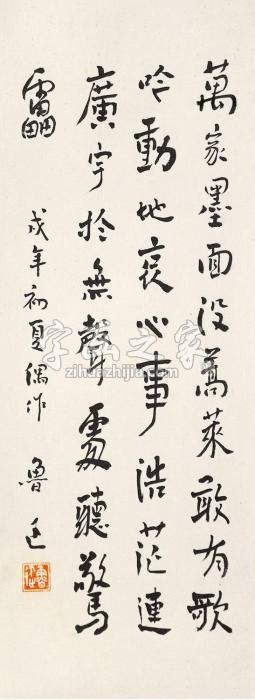 萬家墨面没蒿萊敢有歌
吟動地哀心事浩茫連
廣宇於無聲處聽驚
靁
戌年初夏偶作 魯迅
魯迅
zihuazhijia.com